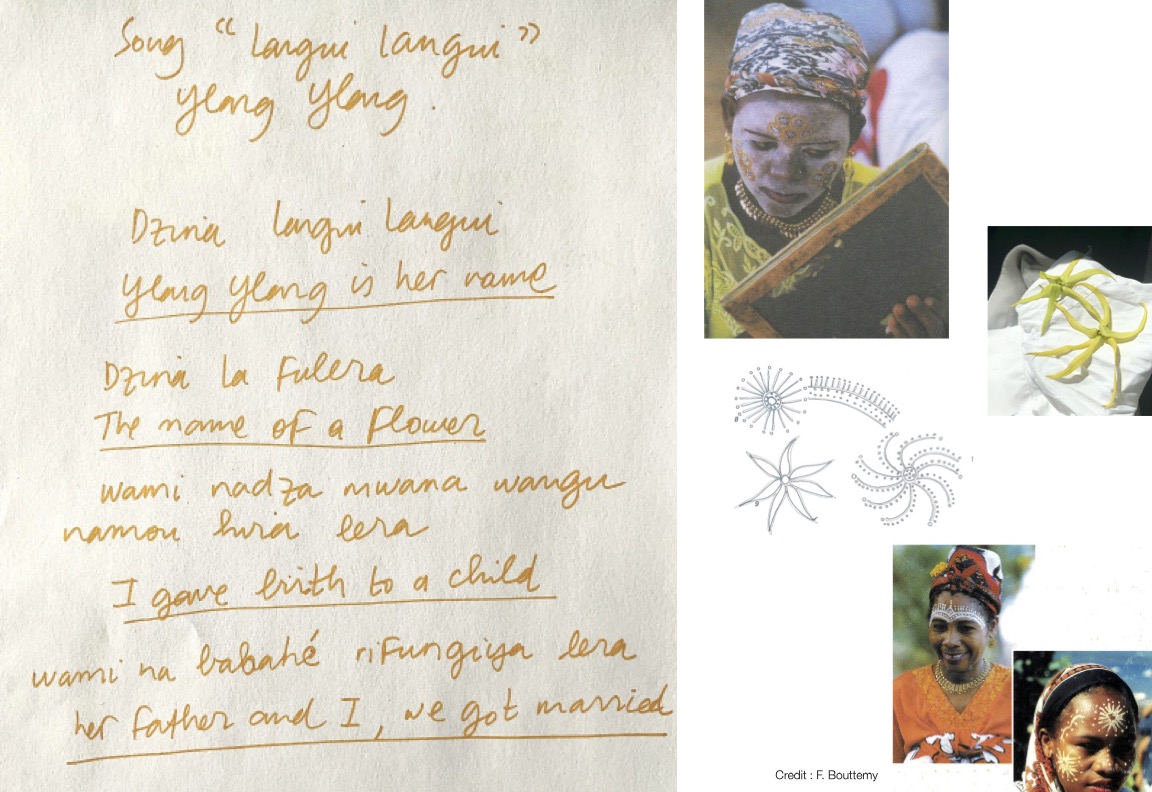 Song “Langui Langui”
Ylang Ylang.
Dzina Langui Langui
Ylang Ylang is her name
Dzina La Fulera
The name of a Flower
wami nadza mwana wangu
namou hira lera
I gave birth to a child
wami na babahé riFungiya lera
her father and I, we got married
Credit : F. Bouttemy